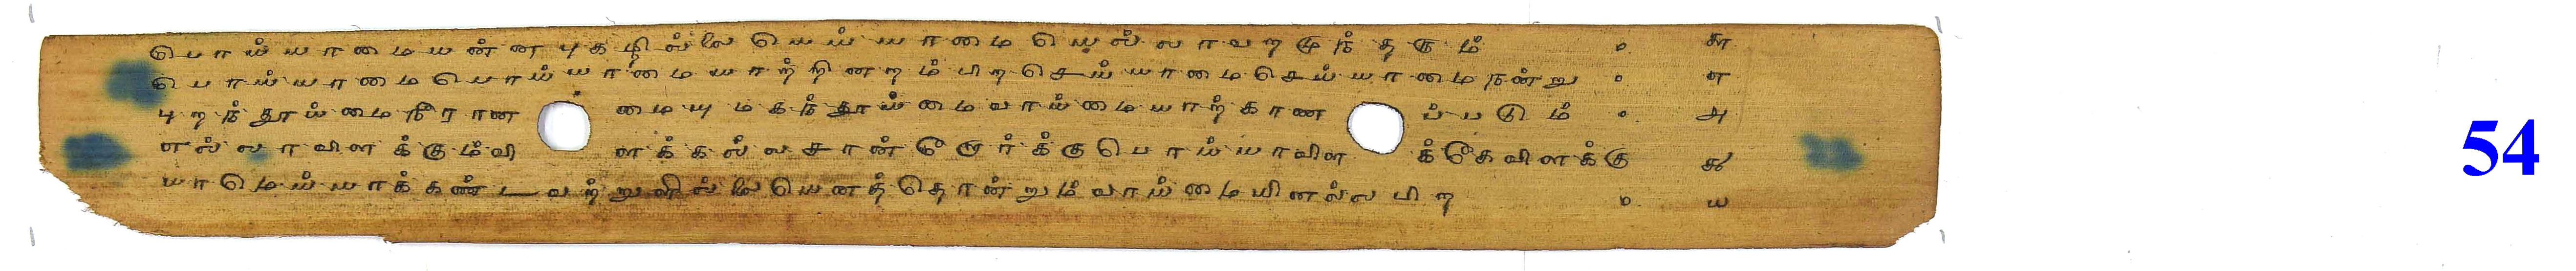 பொய்யாமையன்ன புகழில்லை யெய்யாமை யெல்லாவறமுந் தரும் ௦ ௬
பொய்யாமைபொய்யாமையாற்றினறம் பிறசெய்யாமைசெய்யாமைநன்று ௦ ௭
புறந்தூய்மைநீரான மையு மகந்தூய்மைவாய்மையாற்காண ப்படும் ௦ ௮
எல்லாவிளக்கும்வி ளக்கல்லசான்றோர்க்குபொய்யாவிள க்கேவிளக்கு ௯
யாமெய்யாக்கண்டவற்றுளில்லையெனத்தொன்றும்வாய்மையினல்ல பிற ௦ ௰
54